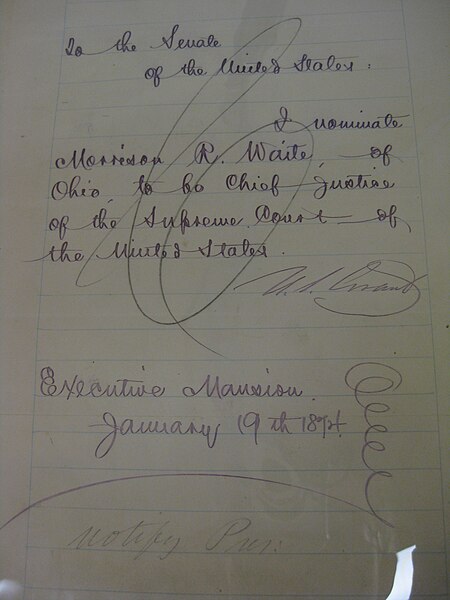 To the Senate
of the United States.
I nominate
Morrison R. Waite, of
Ohio, to be Chief Justice
of the Supreme Court of
the United States.
U. S. Grant
Executive Mansion.
January 19th 1874.
notify Pres.